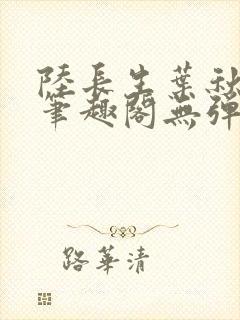 陸長生葉秋
筆趣閣無彈
路華清